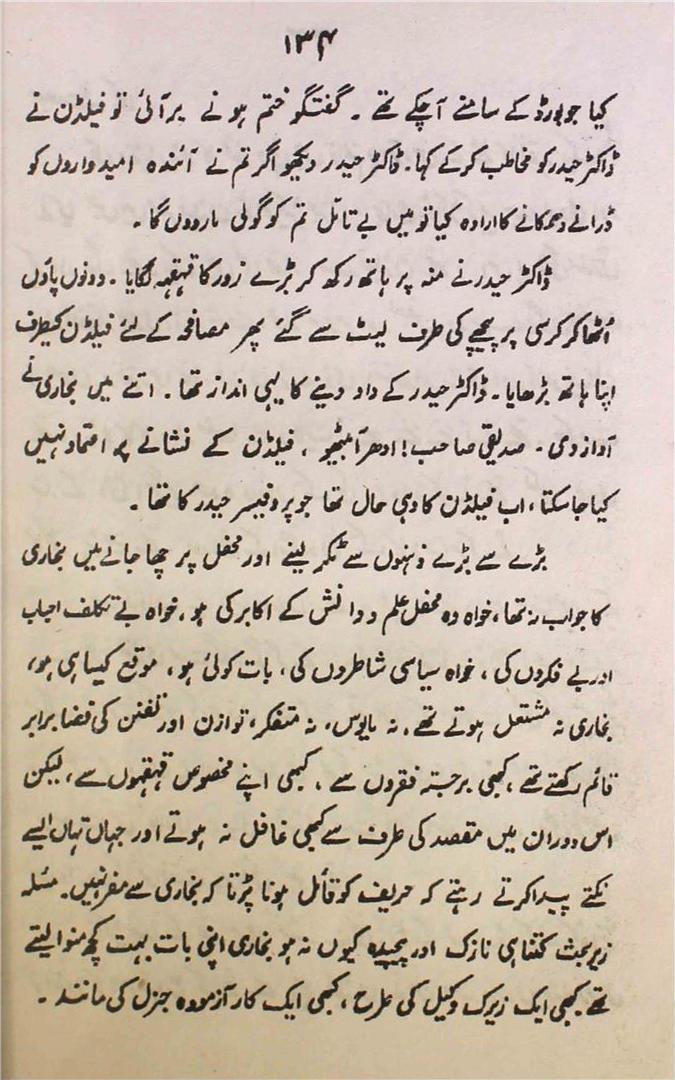 ۱۳۴
کیا جو بورڈ کے سامنے آچکے تھے ۔ گفتگو ختم ہونے پر آئی تو فیلڈن نے
ڈاکٹر حیدر کو مخاطب کر کے کہا۔ ڈاکٹر حیدر دیکھو اگر تم نے آئندہ امیدواروں کو
ڈرانے دھمکانے کا ارادہ کیا تو میں بے تامل تم کو گولی مار دوں گا ۔
ڈاکٹر حیدر نے منہ پر ہاتھ رکھ کر بڑے زور کا قہقہہ لگایا ۔ دونوں پاؤں
اُٹھا کر کرسی پر پیچھے کی طرف لیٹ سے گئے پھر مصافحہ کے لئے فیلڈن کیطرف
اپنا ہاتھ بڑھایا ۔ ڈاکٹر حیدر کے داد دینے کا یہی انداز تھا ۔ اتنے میں بخاری نے
آواز دی ۔ صدیقی صاحب! ادھر آ بیٹھیو ، فیلڈن کے نشانے پر اعتماد نہیں
کیا جاسکتا ، اب فیلڈن کا وہی حال تھا جو پروفیسر حیدر کا تھا ۔
بڑے سے بڑے ذہنوں سے ٹکر لینے اور محفل پر چھا جانے میں بخاری
کا جواب نہ تھا ، خواہ وہ محفل علم و دانش کے اکابر کی ہو ، خواہ بے تکلف احباب
اور بے فکروں کی ، خواہ سیاسی شاطروں کی ، بات کوئی ہو ، موقع کیسا ہی ہو ،
بخاری نہ مشتعل ہوتے تھے ، نہ مایوس ، نہ متفکر ، توازن اور تفنن کی فضا برابر
قائم رکھتے تھے ، کبھی برجستہ فقروں سے ، کبھی اپنے مخصوص قہقہوں سے ، لیکن
اس دوران میں مقصد کی طرف سے کبھی غافل نہ ہوتے اور جہاں تہاں ایسے
نکتے پیدا کرتے رہتے کہ حریف کو قائل ہونا پڑتا کہ بخاری سے مفر نہیں ۔ مسئلہ
زیر بحث کتنا ہی نازک اور پیچیدہ کیوں نہ ہو بخاری اپنی بات بہت کچھ منوا لیتے
تھے کبھی ایک زیرک وکیل کی طرح ، کبھی ایک کار آزمودہ جنرل کی مانند ۔